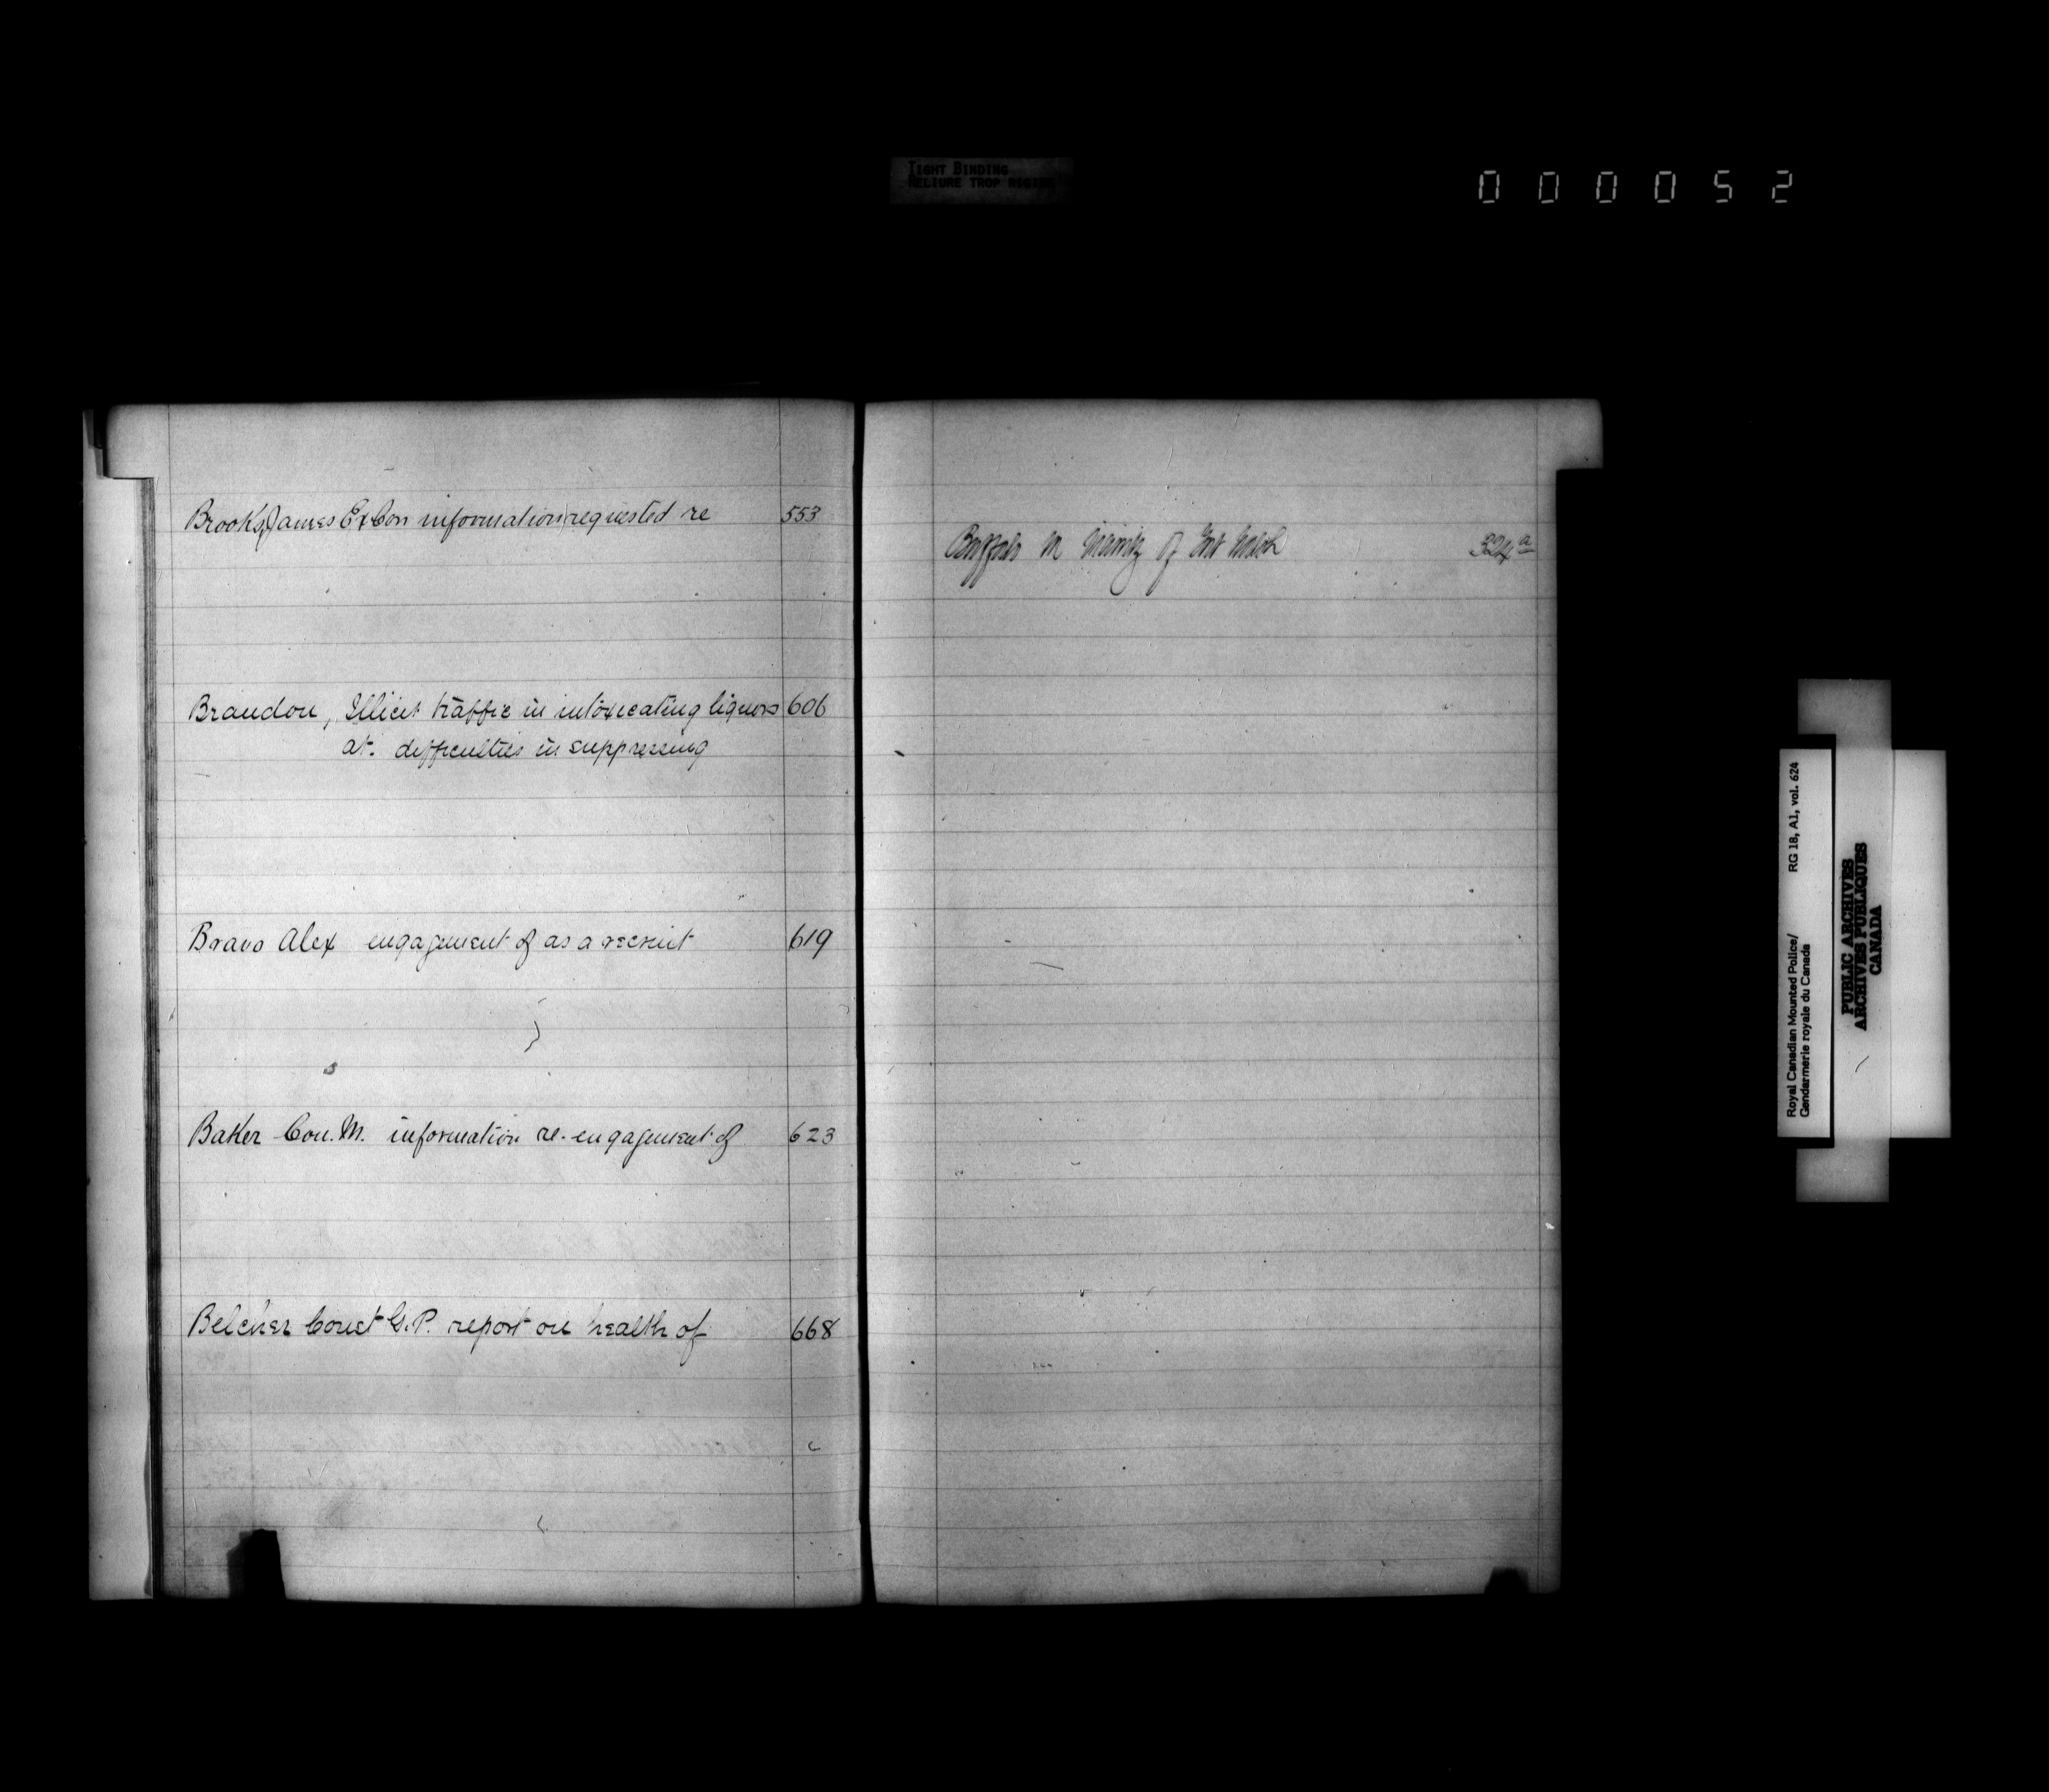 TIGHT BINDING
RELIURE TROP RIGIDE
000052
Brooks, James Ex Con information requested re 553
Brandon, Illicit traffic in intoxicating liquors 606
at. difficulties in suppressing
Bravo Alex engagement of as a recruit 619
Baker Con. M. information re-engagement of 623
Belcher Const G.P. report on health of 668
Buffalo in vicinity of Fort Walsh 324a
Royal Canadian Mounted Police/ RG 18, A1, vol. 624
Gendarmerie royale du Canada
PUBLIC ARCHIVES
ARCHIVES PUBLIQUES
CANADA